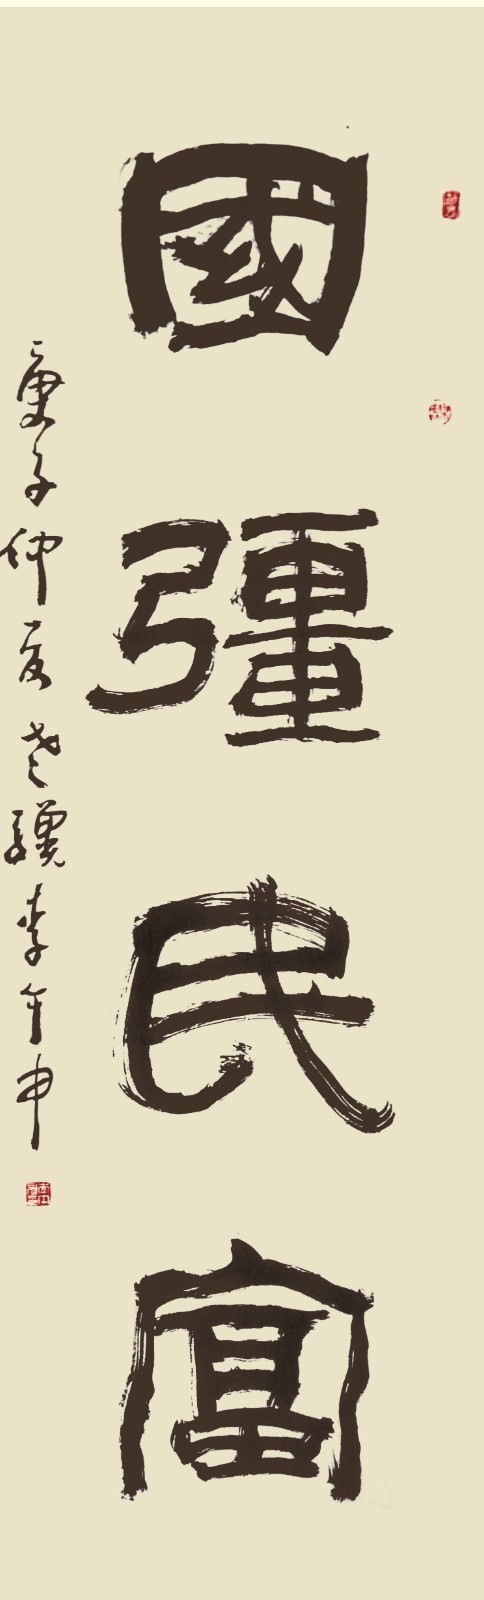 國彊民富
庚子仲夏老驥李午申